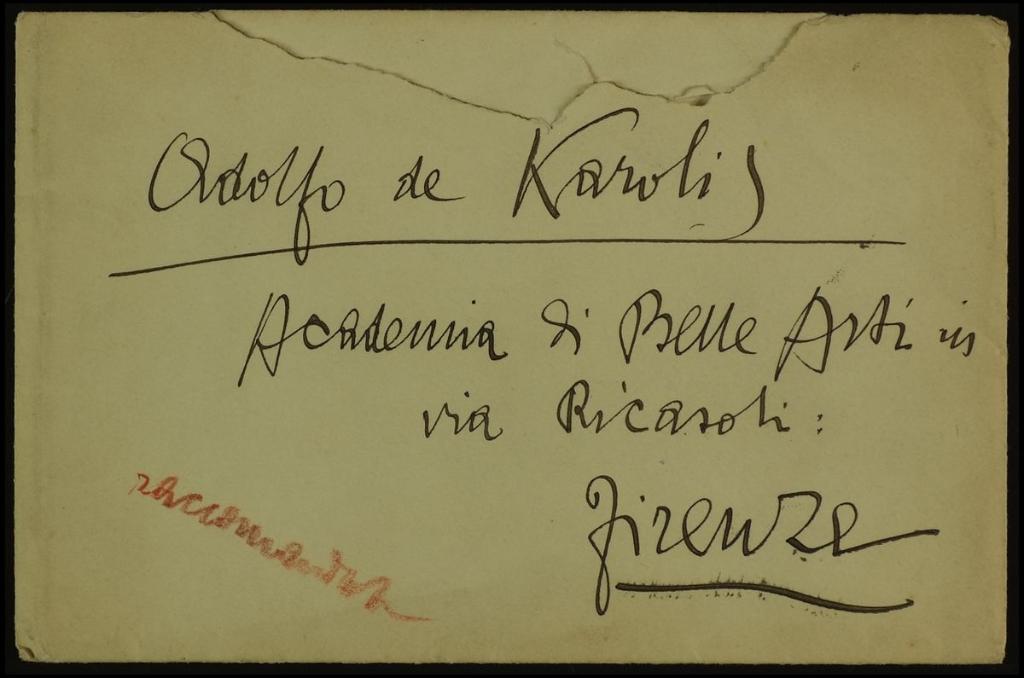 Adolfo de Karolis
Academia di Belle Arti in
via Ricasoli:
Firenze
raccomandata